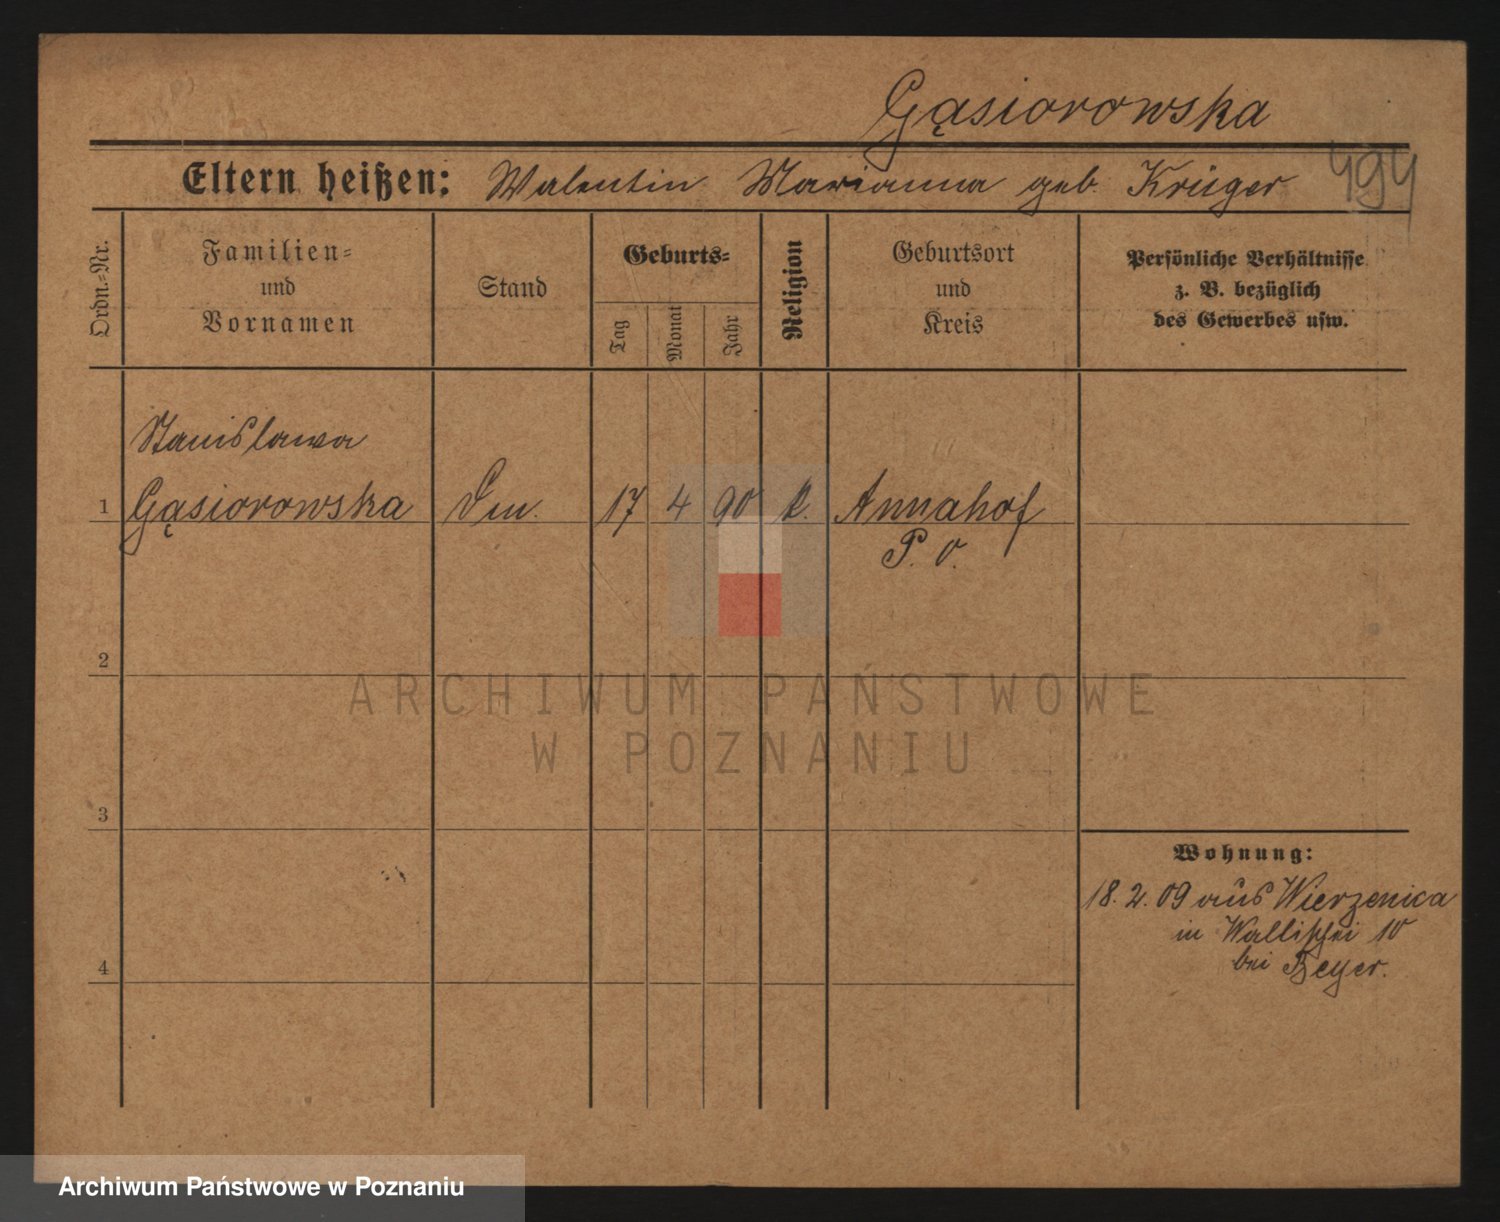 Gąsiorowska
Eltern heißen: Walentin Marianna geb. Krüger
494
Ordn.-Nr.
Familien-
und
Vornamen
Stand
Geburts-
Tag
Monat
Jahr
Religion
Geburtsort
und
Kreis
Persönliche Verhältnisse
z. B. bezüglich
des Gewerbes usw.
Stanisława
1 Gąsiorowska 17 4 90 k. Annahof
P. O.
2
ARCHIWUM PAŃSTWOWE
W POZNANIU
3
Wohnung:
18. 2. 09 aus Wierzenica
in Wallischei 10
bei Beyer.
4
Archiwum Państwowe w Poznaniu